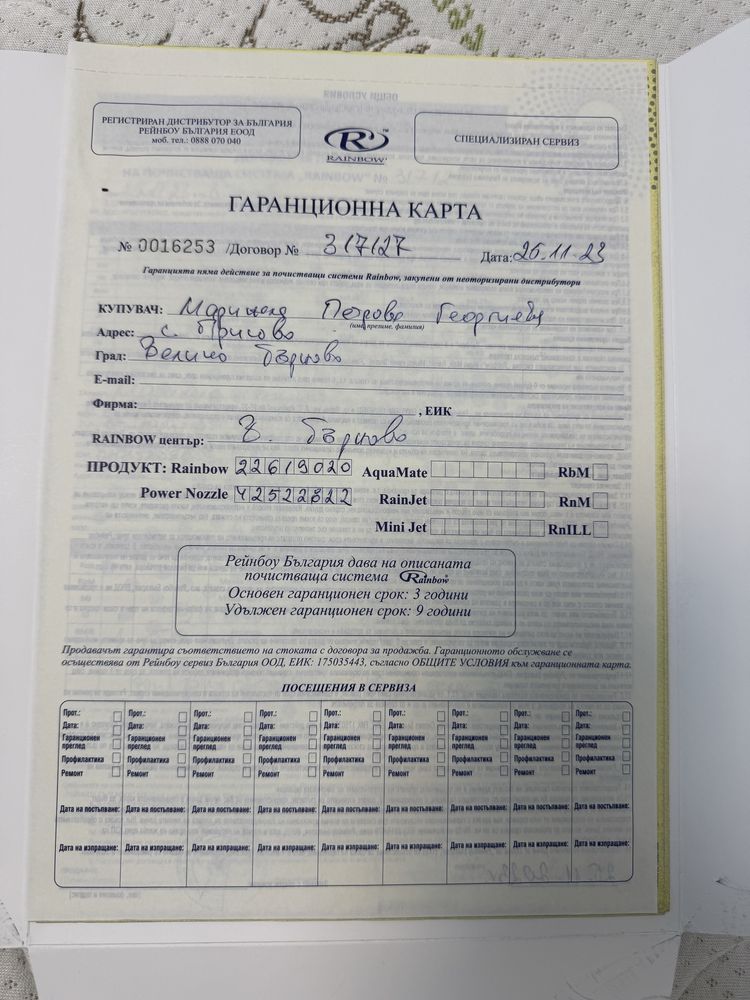 РЕГИСТРИРАН ДИСТРИБУТОР ЗА БЪЛГАРИЯ
РЕЙНБОУ БЪЛГАРИЯ ЕООД
моб. тел.: 0888 070 040
R™
RAINBOW
СПЕЦИАЛИЗИРАН СЕРВИЗ
ГАРАНЦИОННА КАРТА
№ 0016253 /Договор № 317127 Дата: 26.11.23
Гаранцията няма действие за почистващи системи Rainbow, закупени от неоторизирани дистрибутори
КУПУВАЧ: Петрова Георгиева
(име, презиме, фамилия)
Адрес: с. Присово
Град: Велико Търново
E-mail:
Фирма: , ЕИК
RAINBOW център: В. Търново
ПРОДУКТ: Rainbow 22619020 AquaMate RbM
Power Nozzle 42522822 RainJet RnM
Mini Jet RnILL
Рейнбоу България дава на описаната
почистваща система Rainbow
Основен гаранционен срок: 3 години
Удължен гаранционен срок: 9 години
Продавачът гарантира съответствието на стоката с договора за продажба. Гаранционното обслужване се
осъществява от Рейнбоу сервиз България ООД, ЕИК: 175035443, съгласно ОБЩИТЕ УСЛОВИЯ към гаранционната карта.
ПОСЕЩЕНИЯ В СЕРВИЗА
Прот.: Прот.: Прот.: Прот.: Прот.: Прот.: Прот.: Прот.: Прот.:
Дата: Дата: Дата: Дата: Дата: Дата: Дата: Дата: Дата:
Гаранционен Гаранционен Гаранционен Гаранционен Гаранционен Гаранционен Гаранционен Гаранционен Гаранционен
преглед преглед преглед преглед преглед преглед преглед преглед преглед
Профилактика Профилактика Профилактика Профилактика Профилактика Профилактика Профилактика Профилактика Профилактика
Ремонт Ремонт Ремонт Ремонт Ремонт Ремонт Ремонт Ремонт Ремонт
Дата на постъпване: Дата на постъпване: Дата на постъпване: Дата на постъпване: Дата на постъпване: Дата на постъпване: Дата на постъпване: Дата на постъпване: Дата на постъпване:
Дата на изпращане: Дата на изпращане: Дата на изпращане: Дата на изпращане: Дата на изпращане: Дата на изпращане: Дата на изпращане: Дата на изпращане: Дата на изпращане: